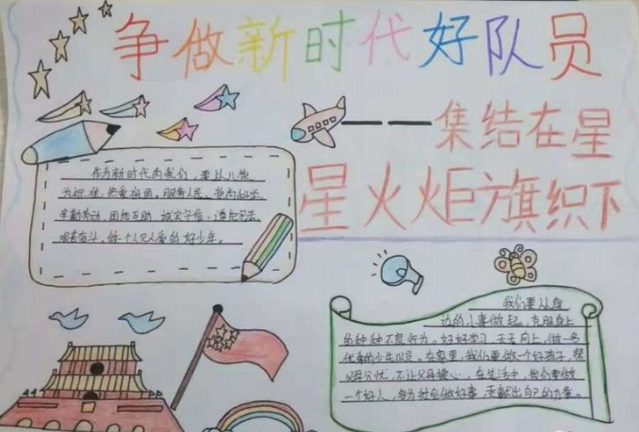 争做新时代好队员
——集结在星
星火炬旗织下
作为新时代的我们，要以八荣
为标准，热爱祖国，服务人民，崇尚科学
辛勤劳动，团结互助，诚实守信，遵纪守法，
艰苦奋斗，做一个人见人爱的好少年。
我们要从身
边的小事做起，克服身上
的种种不良行为，好好学习，天天向上，做一名
优秀的少年队员，在家里，我们要做一个好孩子，帮
父母分忧，不让父母操心，在生活中，我们要做
一个好人，多为社会做好事，贡献出自己的力量。